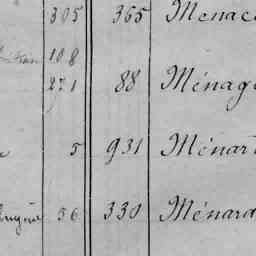 305 365 Menac
108
271 88 Ménag
5 931 Ménar
Eugène 56 330 Ménard